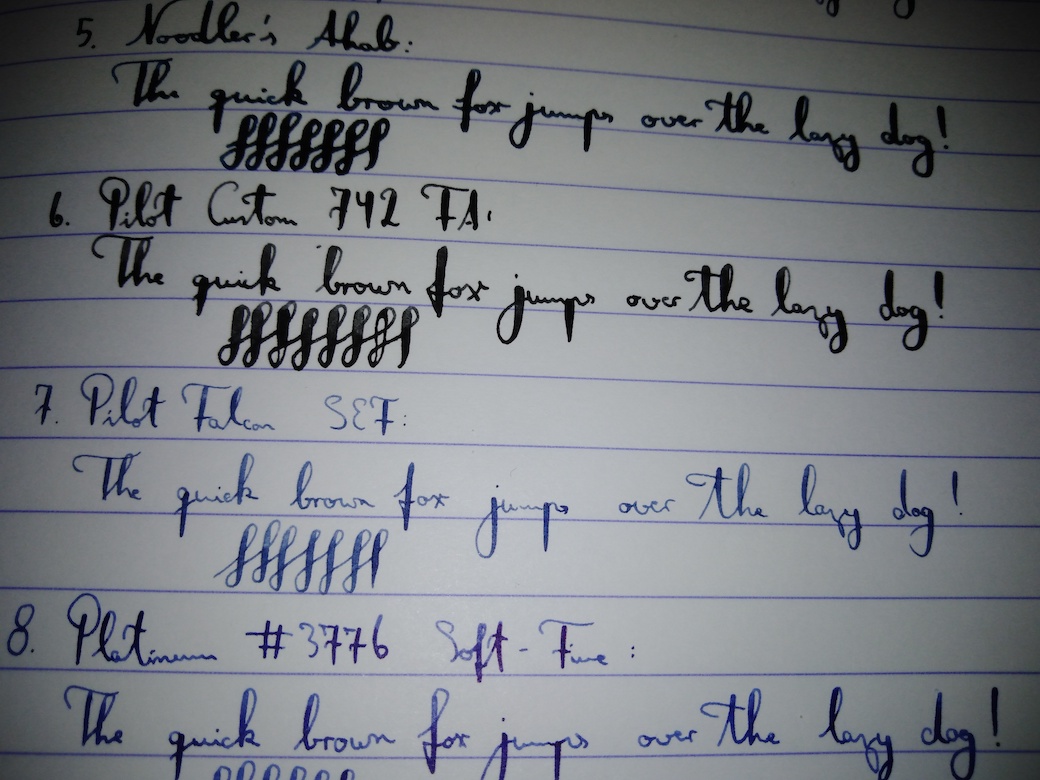 5. Noodler's Ahab:
The quick brown fox jumps over the lazy dog!
6. Pilot Custom 742 FA:
The quick brown fox jumps over the lazy dog!
7. Pilot Falcon SEF:
The quick brown fox jumps over the lazy dog!
8. Platinum #3776 Soft-Fine:
The quick brown fox jumps over the lazy dog!